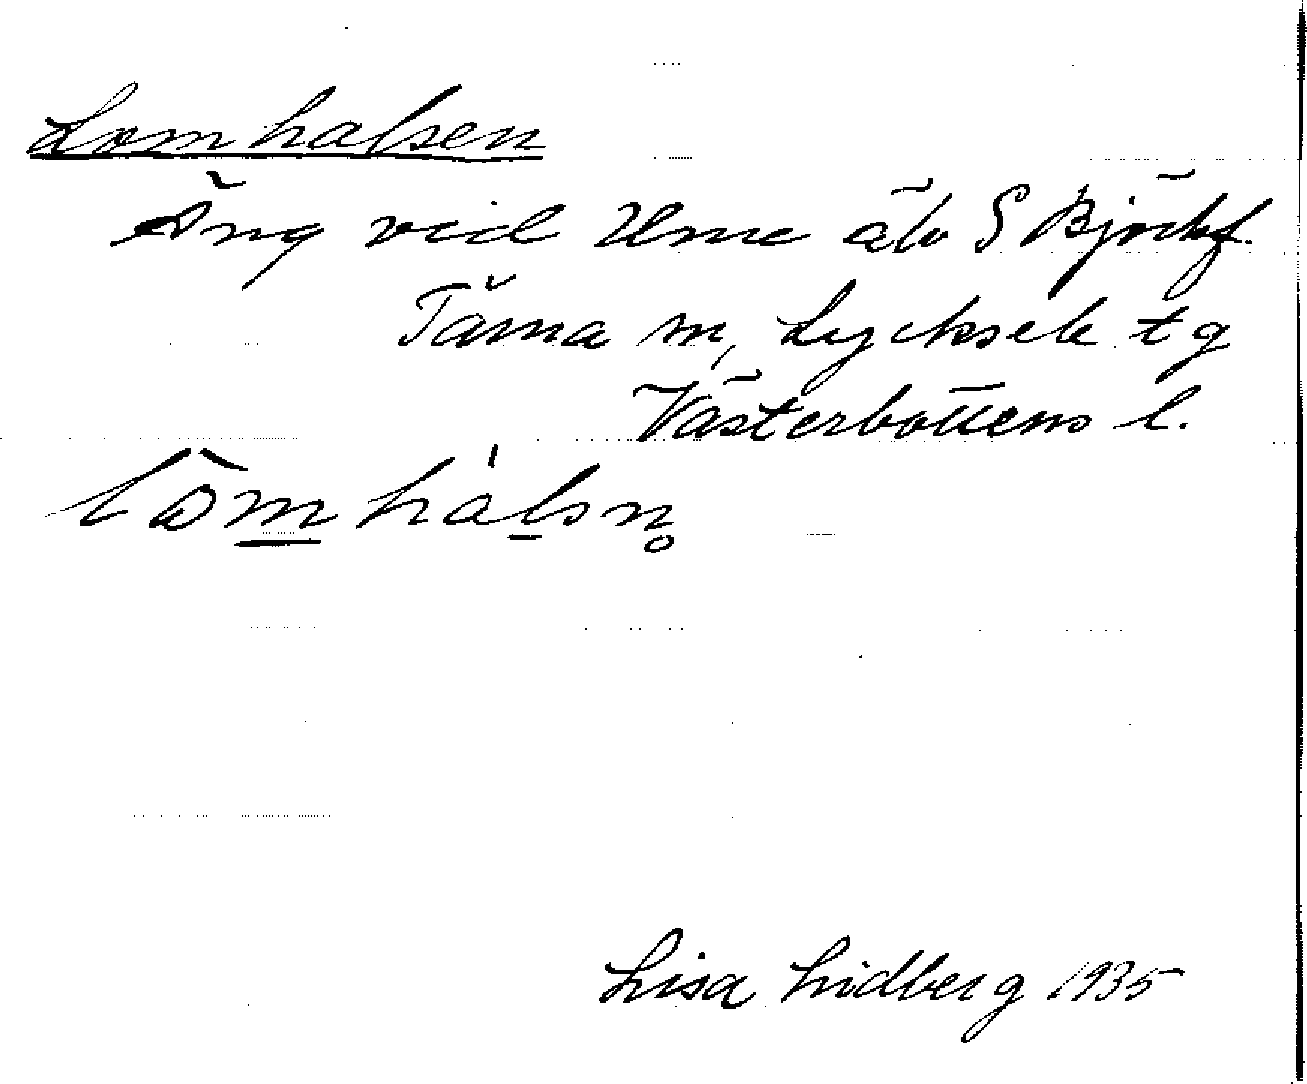 Lomhalsen
Äng vid Ume älv S Björkf.
Tärna sn, Lycksele tg
Västerbottens l.
lòmhálsn̥
Lisa Lidberg 1935